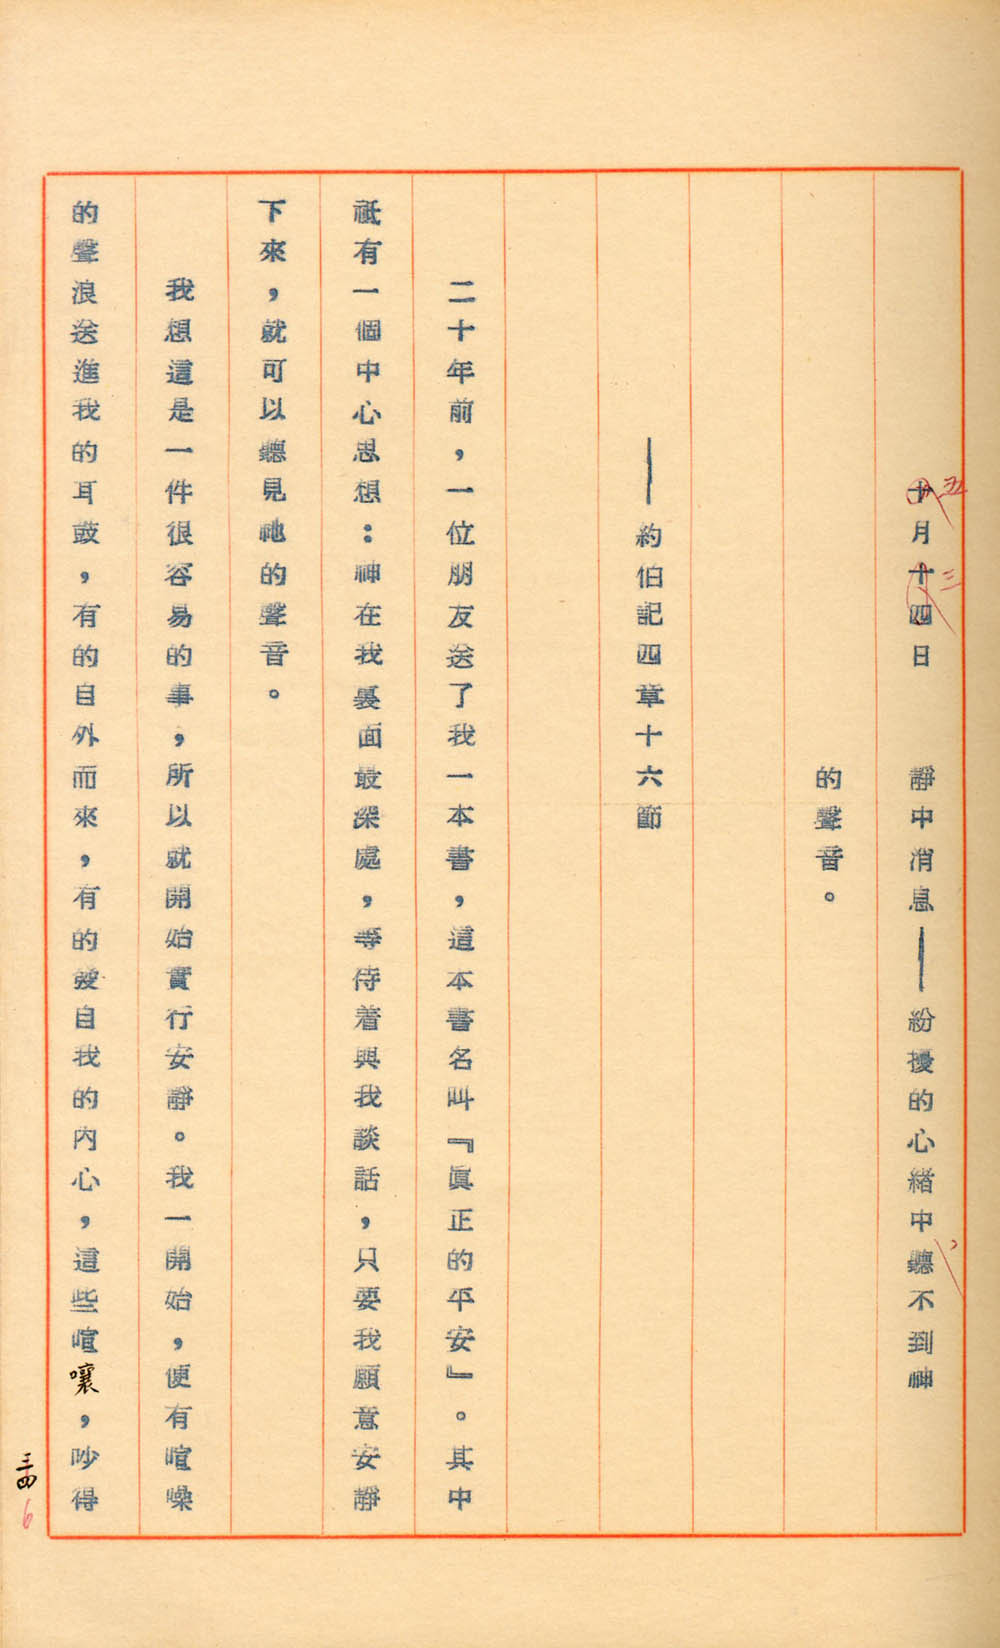 十月十四日　靜中消息——紛擾的心緒中聽不到神
五
三
、
的聲音。
——約伯記四章十六節
二十年前，一位朋友送了我一本書，這本書名叫『眞正的平安』。其中
祇有一個中心思想：神在我裏面最深處，等待着與我談話，只要我願意安靜
下來，就可以聽見祂的聲音。
我想這是一件很容易的事，所以就開始實行安靜。我一開始，便有喧噪
的聲浪送進我的耳鼓，有的自外而來，有的發自我的內心，這些喧嚷，吵得
三四
6